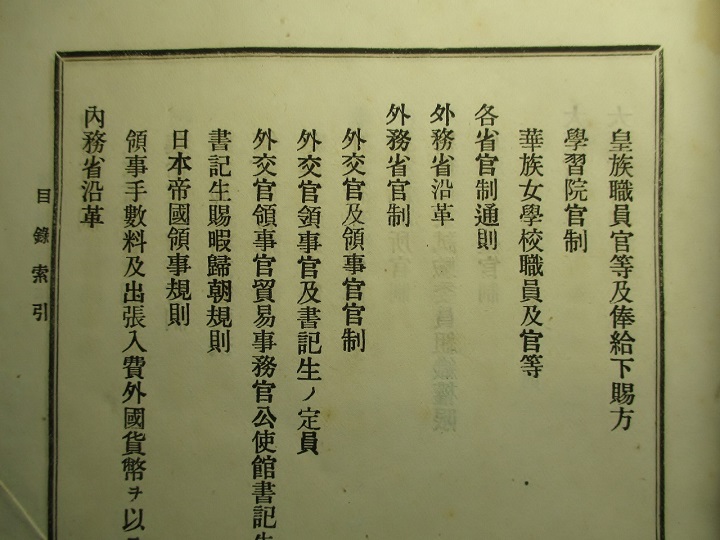 皇族職員官等及俸給下賜方
學習院官制
華族女學校職員及官等
各省官制通則
外務省沿革
外務省官制
外交官及領事官官制
外交官領事官及書記生ノ定員
外交官領事官貿易事務官公使館書記生
書記生賜暇歸朝規則
日本帝國領事規則
領事手數料及出張入費外國貨幣ヲ以
內務省沿革
目錄索引